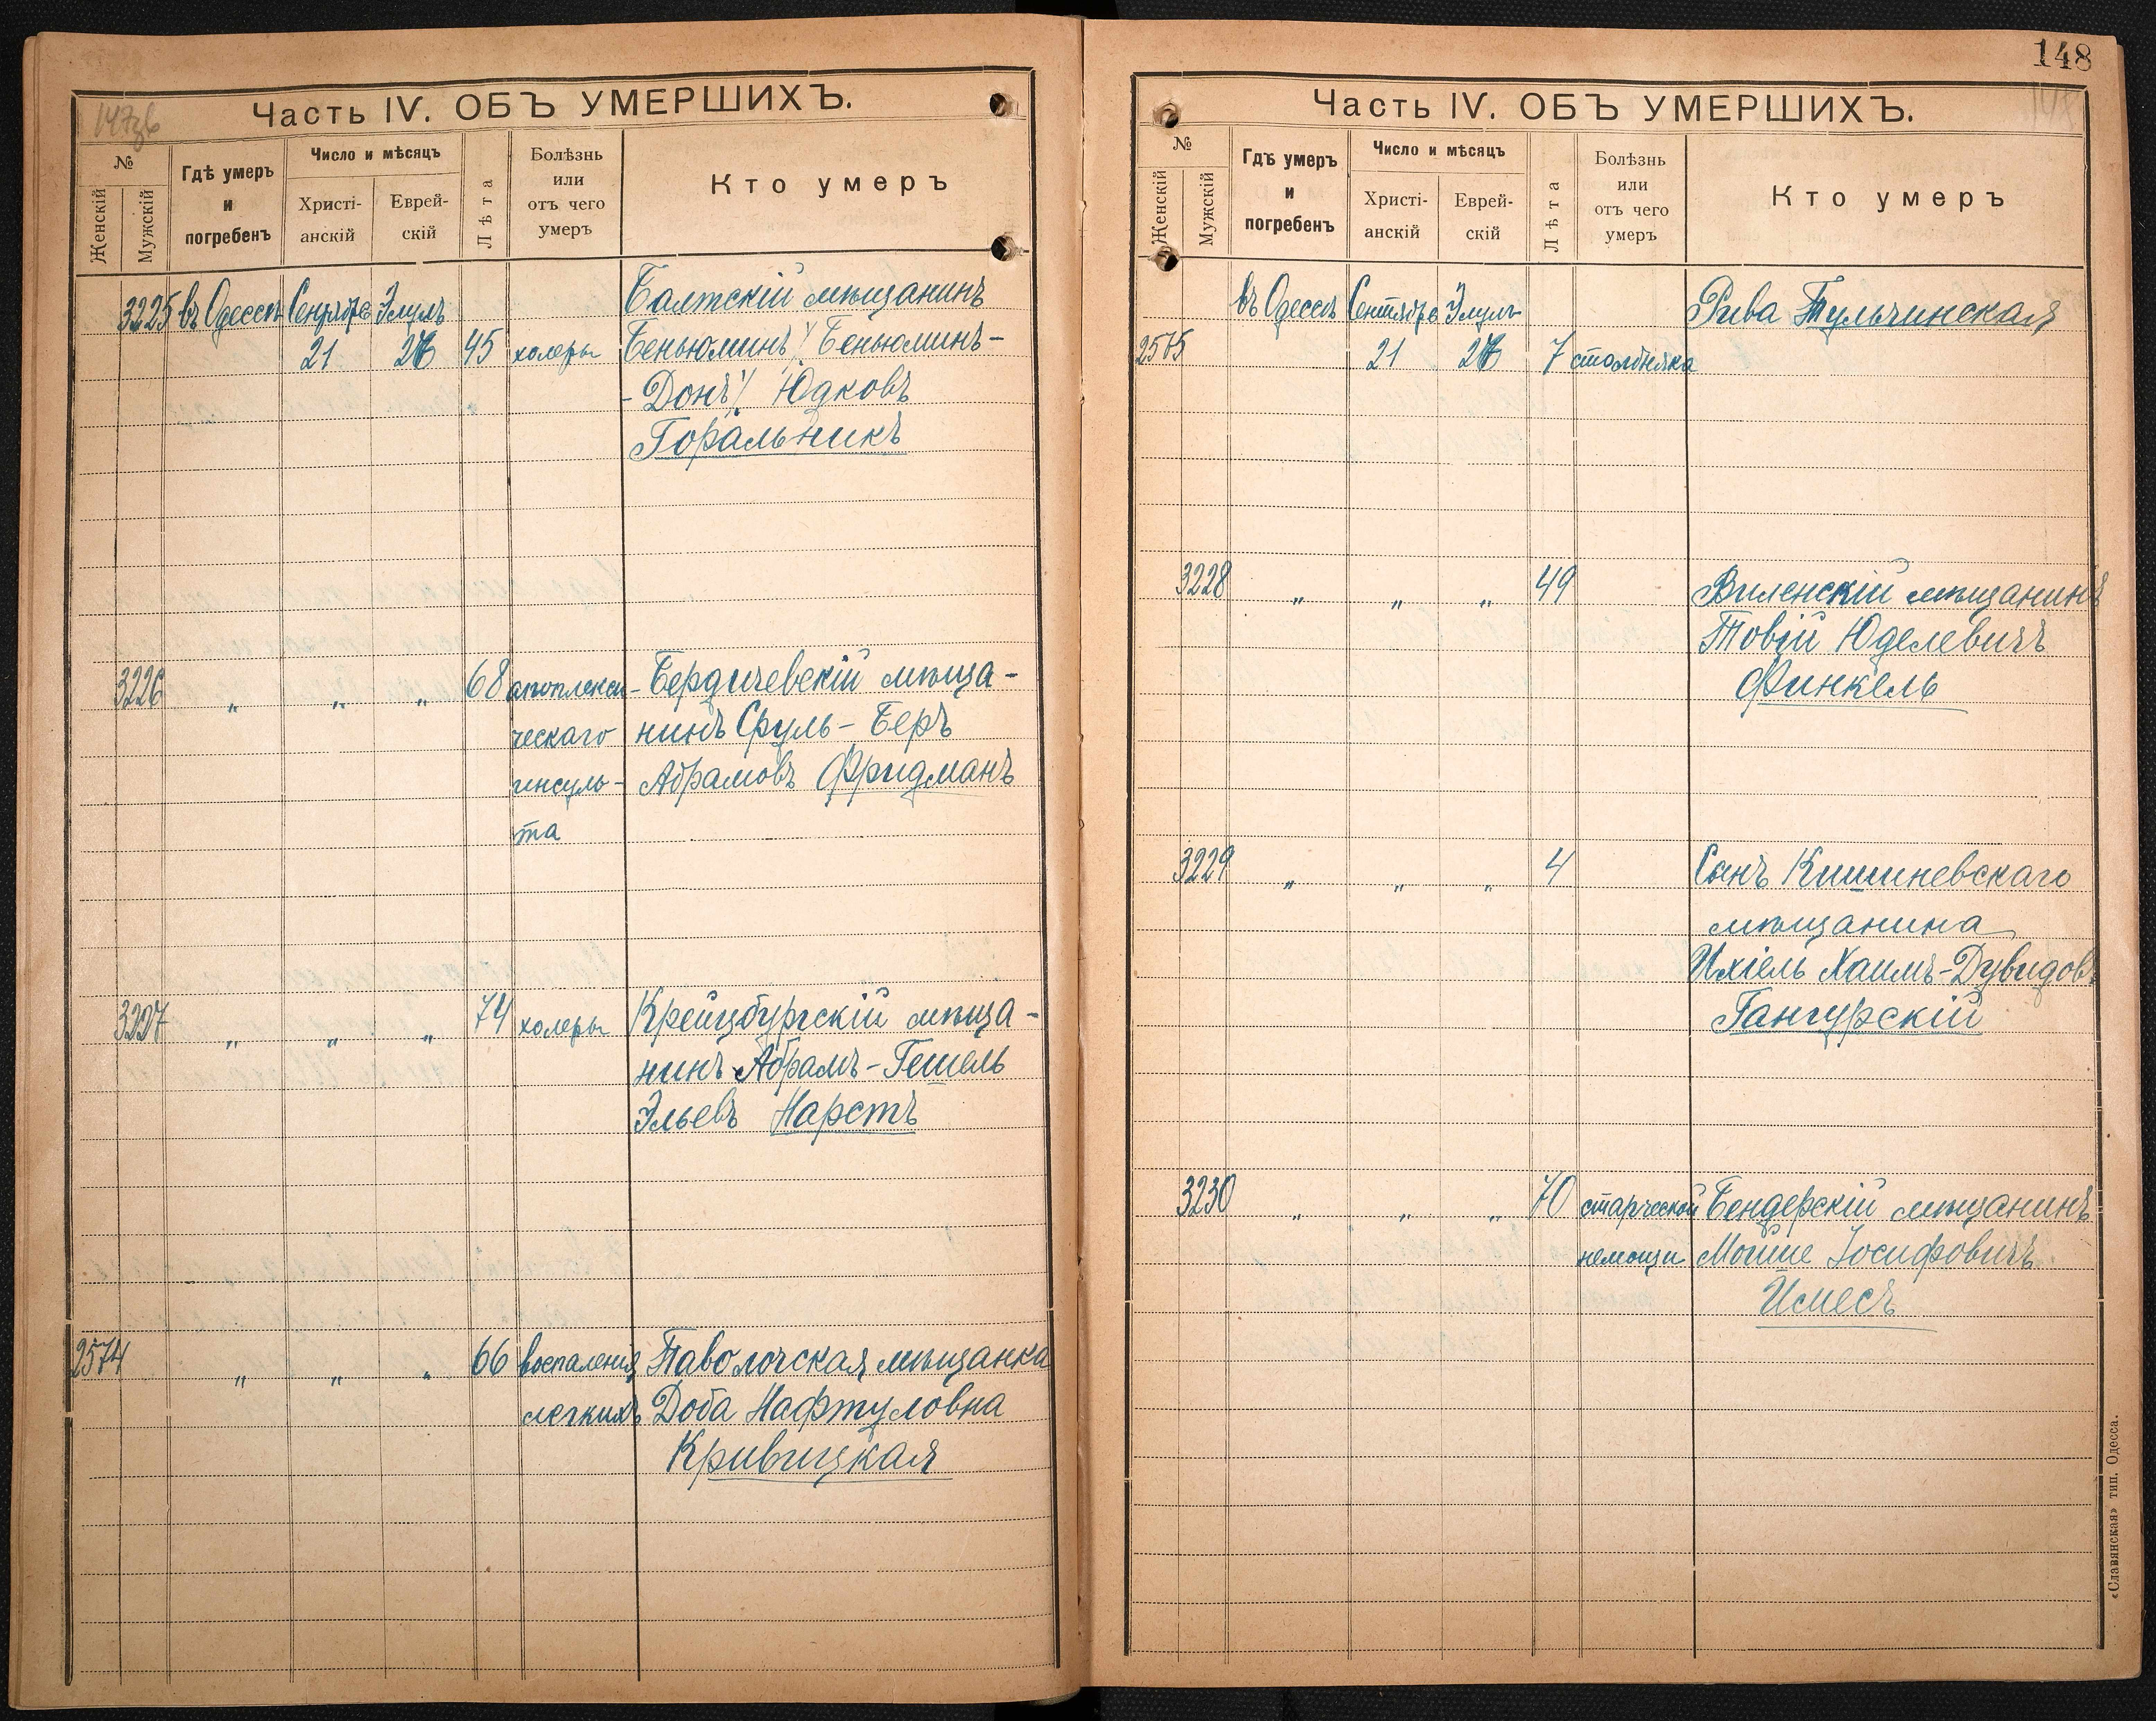 147зв
Часть IV. ОБЪ УМЕРШИХЪ.
№
Женскій
Мужскій
Гдѣ умеръ
и
погребенъ
Число и мѣсяцъ
Христі-
анскій
Еврей-
скій
Лѣта
Болѣзнь
или
отъ чего
умеръ
Кто умеръ
3225 въ Одессѣ Сентября Элулъ Балтскій мѣщанинъ
21 45 холеры Беньюминъ/Беньюминъ-
-Донъ/ Юдковъ
Горальникъ
3226 „ „ „ 68 апоплекси- Бердичевскій мѣща-
ческаго нинъ Сруль-Беръ
инсуль- Абрамовъ Фридманъ
та
3227 „ „ „ 74 холеры Крейцбургскій мѣща-
нинъ Абрамъ-Гешель
Эльевъ Нарстъ
2574 „ „ „ 66 воспаленія Паволочская мѣщанка
легкихъ Доба Нафтуловна
Кривицкая
148
Часть IV. ОБЪ УМЕРШИХЪ.
№
Женскій
Мужскій
Гдѣ умеръ
и
погребенъ
Число и мѣсяцъ
Христі-
анскій
Еврей-
скій
Лѣта
Болѣзнь
или
отъ чего
умеръ
Кто умеръ
въ Одессѣ Сентября Элулъ Рива Тульчинская
2575 21 7 столбняка
3228 „ „ „ 49 Виленскій мѣщанинъ
Товій Юделевичъ
Финкель
3229 „ „ „ 4 Сынъ Кишиневскаго
мѣщанина
Ихіель Хаимъ-Дувидовъ
Гангурскій
3230 „ „ „ 70 старческой Бендерскій мѣщанинъ
немощи Мошше Іосифовичъ
Имесъ
«Славянская» тип. Одесса.